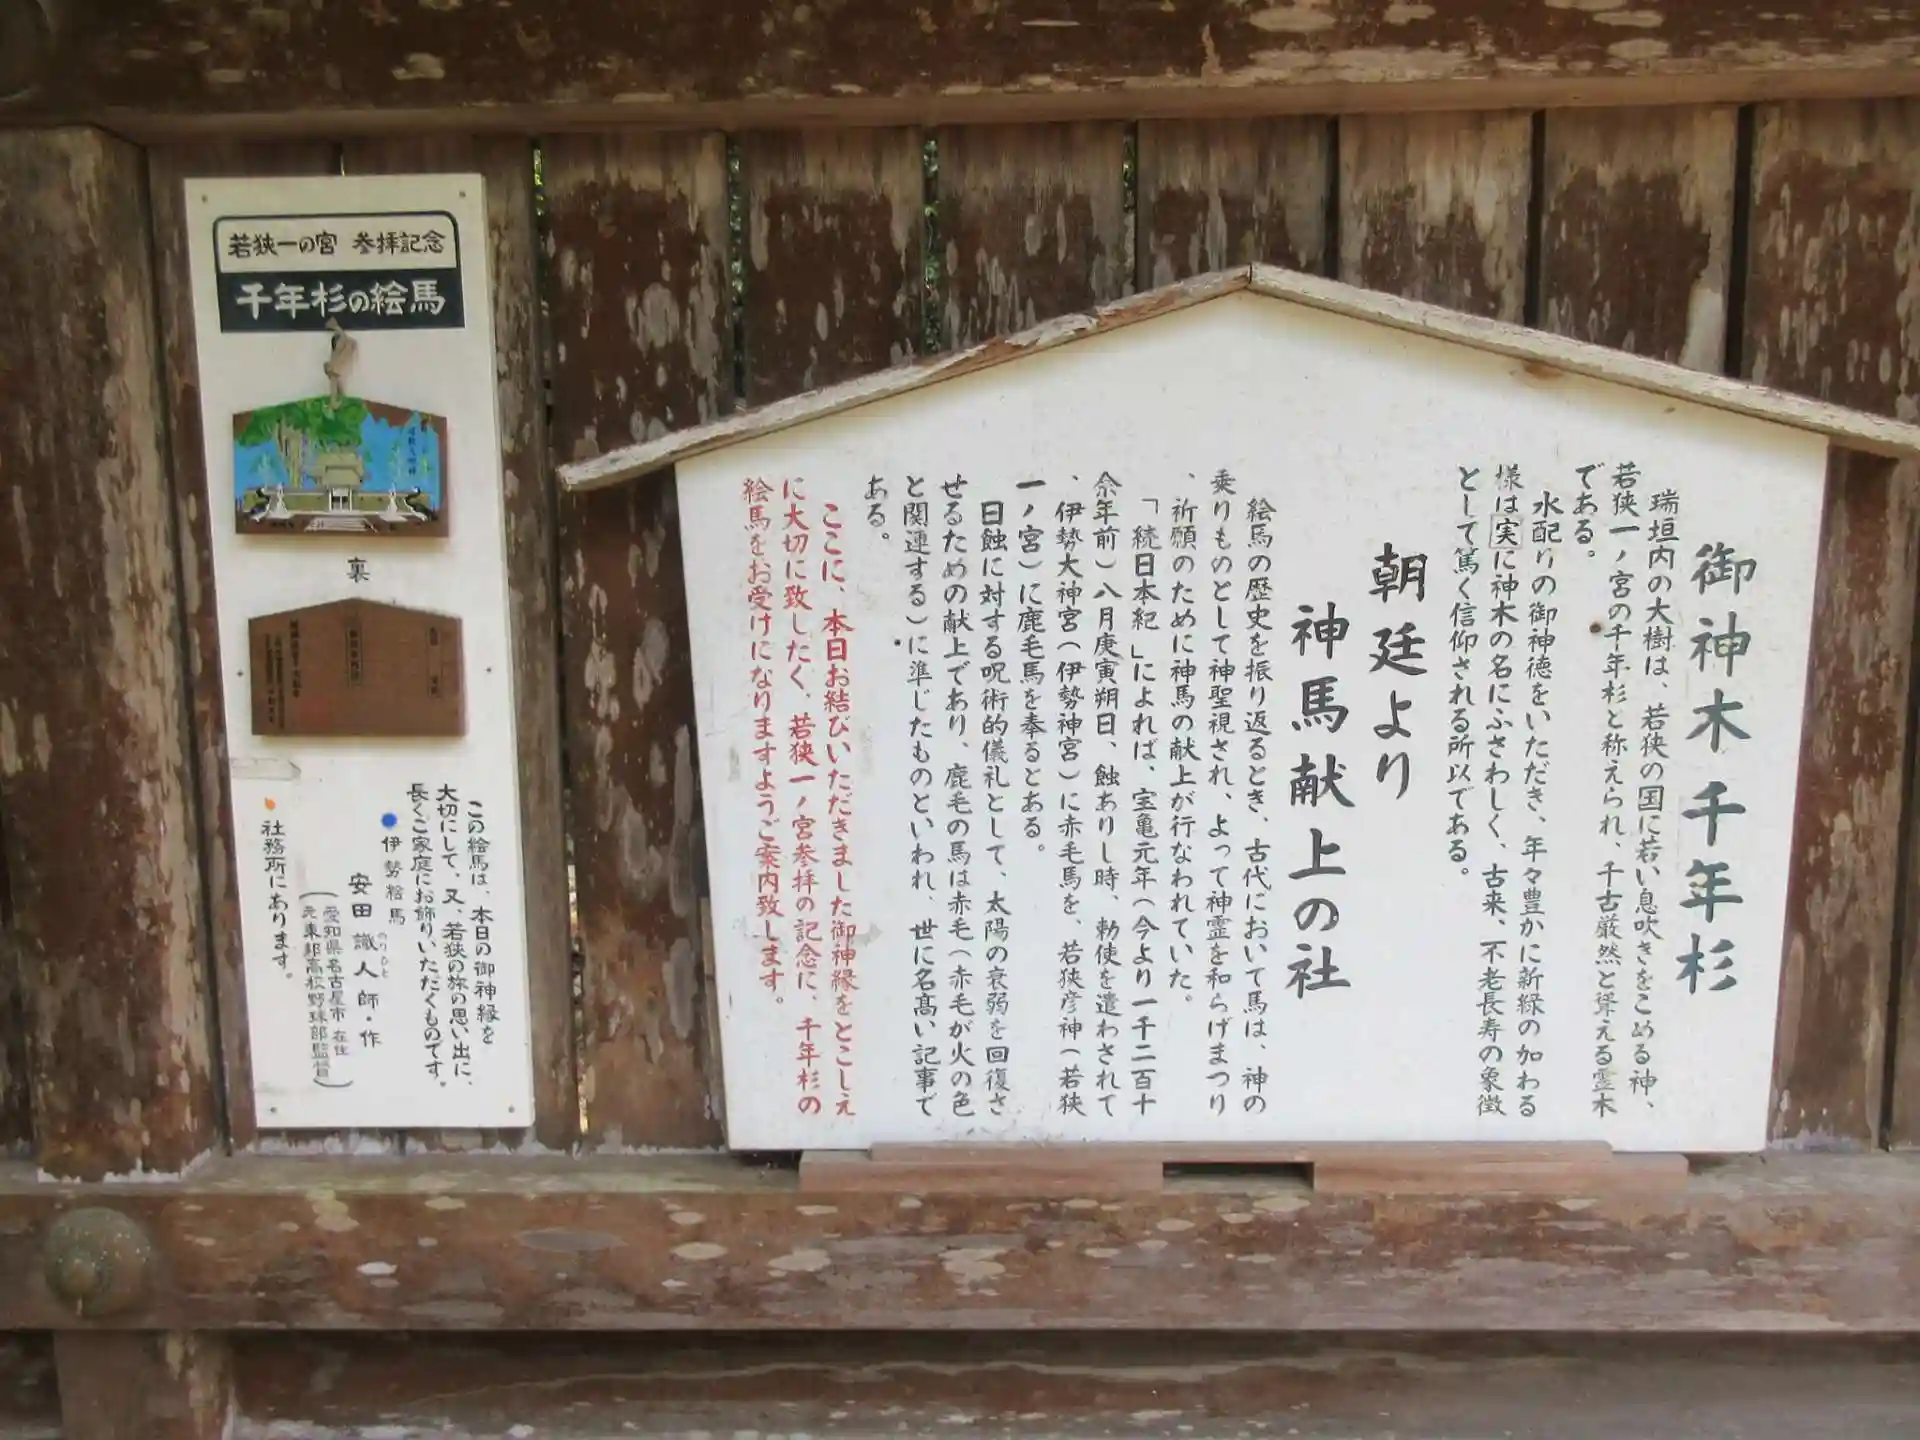 御神木千年杉
瑞垣内の大樹は、若狭の国に若い息吹きをこめる神、
若狭一ノ宮の千年杉と称えられ、千古厳然と聳える霊木
である。
水配りの御神徳をいただき、年々豊かに新緑の加わる
様は実に神木の名にふさわしく、古来、不老長寿の象徴
として篤く信仰される所以である。
朝廷より
神馬献上の社
絵馬の歴史を振り返るとき、古代において馬は、神の
乗りものとして神聖視され、よって神霊を和らげまつり
、祈願のために神馬の献上が行なわれていた。
「続日本紀」によれば、宝亀元年(今より一千二百十
余年前)八月庚寅朔日、蝕ありし時、勅使を遣わされて
、伊勢大神宮(伊勢神宮)に赤毛馬を、若狭彦神(若狭
一ノ宮)に鹿毛馬を奉るとある。
日蝕に対する呪術的儀礼として、太陽の衰弱を回復さ
せるための献上であり、鹿毛の馬は赤毛(赤毛が火の色
と関連する)に準じたものといわれ、世に名高い記事で
ある。
ここに、本日お結びいただきました御神縁をとこしえ
に大切に致したく、若狭一ノ宮参拝の記念に、千年杉の
絵馬をお受けになりますようご案内致します。
若狭一の宮 参拝記念
千年杉の絵馬
裏
この絵馬は、本日の御神縁を
大切にして、又、若狭の旅の思い出に、
長くご家庭にお飾りいただくものです。
伊勢絵馬
安田識人師・作
のりひと
(愛知県名古屋市在住
元東邦高校野球部監督)
社務所にあります。